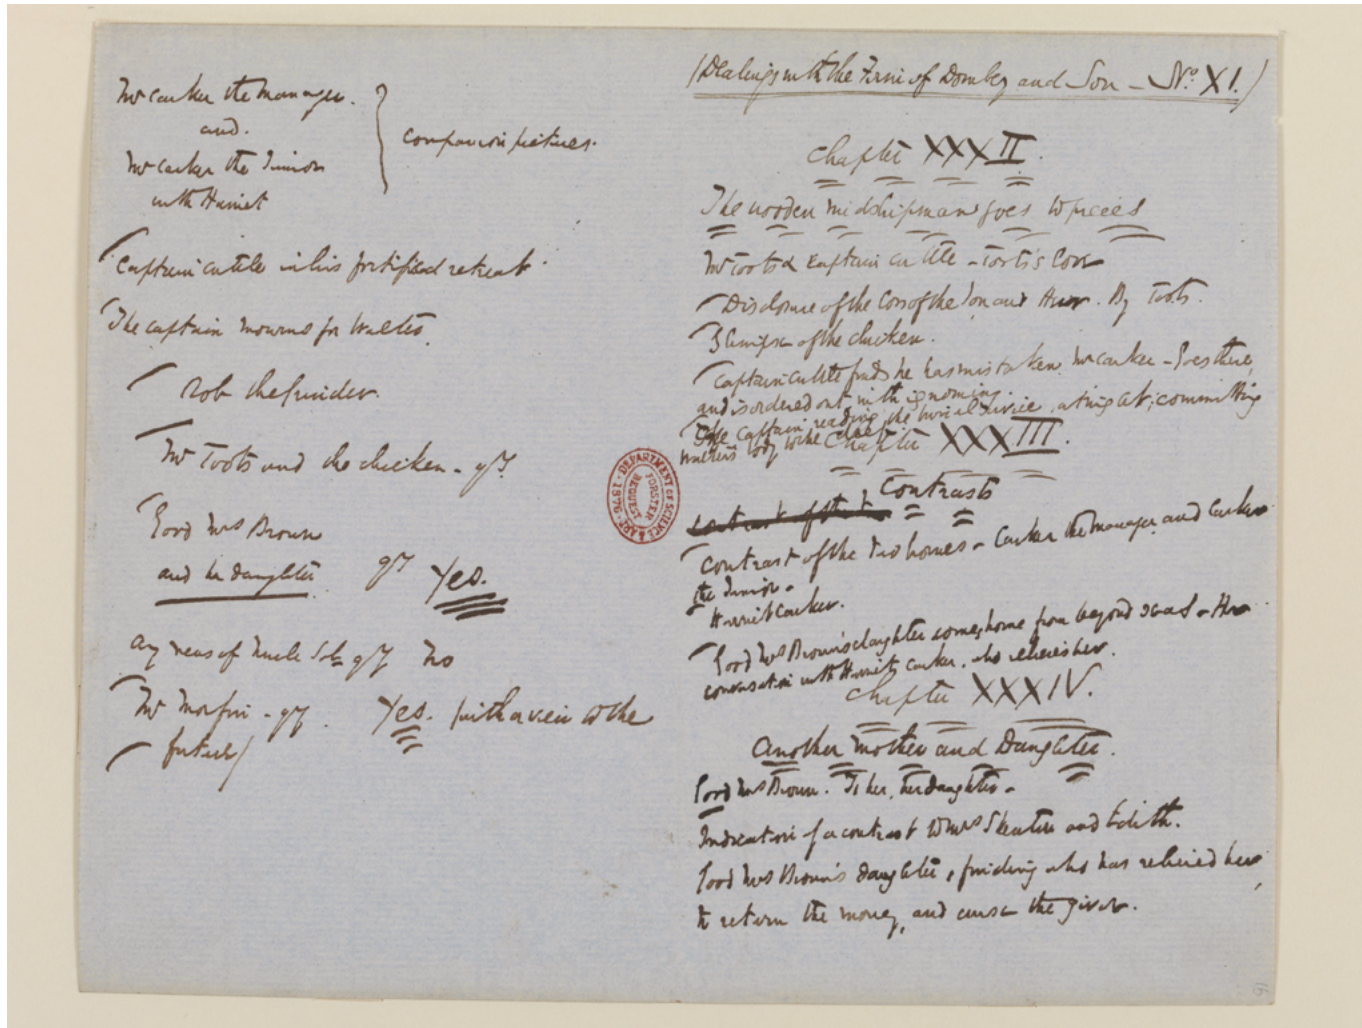 Mr Carker the Manager.
and.
Mr Carker the Junior
with Harriet
companion pictures.
Captain Cuttle in his fortified retreat
The captain mourns for Walter.
Rob the Grinder.
Mr Toots and the chicken - qy?
Good Mrs Brown
and her daughter qy Yes.
Any news of Uncle Sol - qy No
Mr Morfin - qy. Yes. (with a view to the
future)
(Dealings with the Firm of Dombey and Son - No. XI.)
Chapter XXXII.
The wooden midshipman goes to pieces
Mr Toots & Captain Cuttle - Toots's love
Disclosure of the loss of the Son and Heir. By Toots.
Glimpse of the chicken.
Captain Cuttle finds he has mistaken Mr Carker - Goes there,
and is ordered out with ignominy.
The Captain reading the burial service, committing
Walter's body to the deep
Chapter XXXIII.
Contrasts
Contrast of the two homes - Carker the Manager, and Carker
the Junior -
Harriet Carker.
Good Mrs Brown's daughter comes home from beyond seas - Her
conversation with Harriet Carker, who relieves her.
Chapter XXXIV.
Another Mother and Daughter.
Good Mrs Brown. To her, her daughter -
Indication of a contrast to Mrs Skewton and Edith.
Good Mrs Brown's daughter, finding who has relieved her,
to return the money, and curse the giver.
DEPARTMENT OF SCIENCE & ART · 1876
FORSTER
BEQUEST